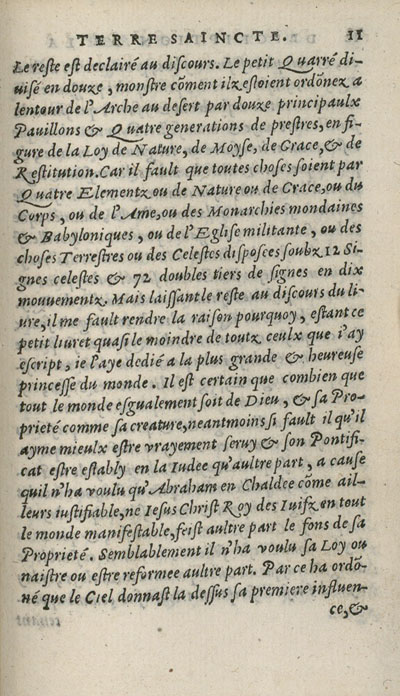 TERRE SAINCTE. 11
Le reste est declairé au discours. Le petit Quarré di-
uisé en douze, monstre cōment ilz estoient ordōnez a
lentour de l'Arche au desert par douze principaulx
Pauillons & Quatre generations de prestres, en fi-
gure de la Loy de Nature, de Moyse, de Grace, & de
Restitution. Car il fault que toutes choses soient par
Quatre Elementz ou de Nature ou de Grace, ou du
Corps, ou de l'Ame, ou des Monarchies mondaines
& Babyloniques, ou de l'Eglise militante, ou des
choses Terrestres ou des Celestes disposees soubz 12 Si-
gnes celestes & 72 doubles tiers de signes en dix
mouuementz. Mais laissant le reste au discours du li-
ure, il me fault rendre la raison pourquoy, estant ce
petit liuret quasi le moindre de toutz ceulx que i'ay
escript, ie l'aye dedié a la plus grande & heureuse
princesse du monde. Il est certain que combien que
tout le monde esgualement soit de Dieu, & sa Pro-
prieté comme sa creature, neantmoins si fault il qu'il
ayme mieulx estre vrayement seruy & son Pontifi-
cat estre estably en la Iudee qu'aultre part, a cause
quil n'ha voulu qu'Abraham en Chaldee cōme ail-
leurs iustifiable, ne Iesus Christ Roy des Iuifz en tout
le monde manifestable, feist aultre part le fons de sa
Proprieté. Semblablement il n'ha voulu sa Loy ou
naistre ou estre reformee aultre part. Par ce ha ordō-
né que le Ciel donnast la dessus sa premiere influen-
ce, &